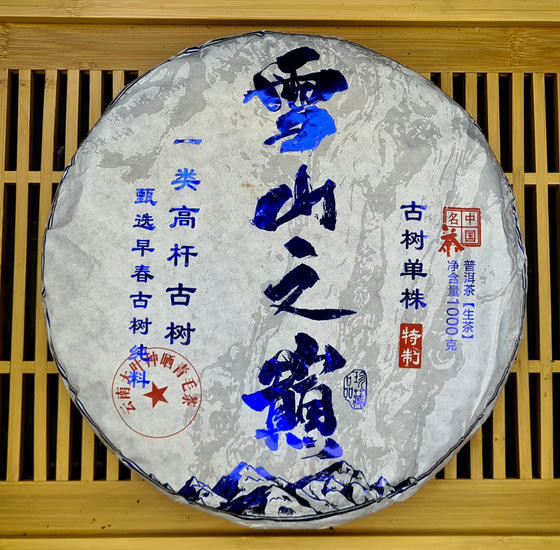 中国
名茶
普洱茶【生茶】
净含量1000克
古树单株
特制
雪山之巅
珍藏
品
一类高杆古树
甄选早春古树纯料
云南大叶种晒青毛茶